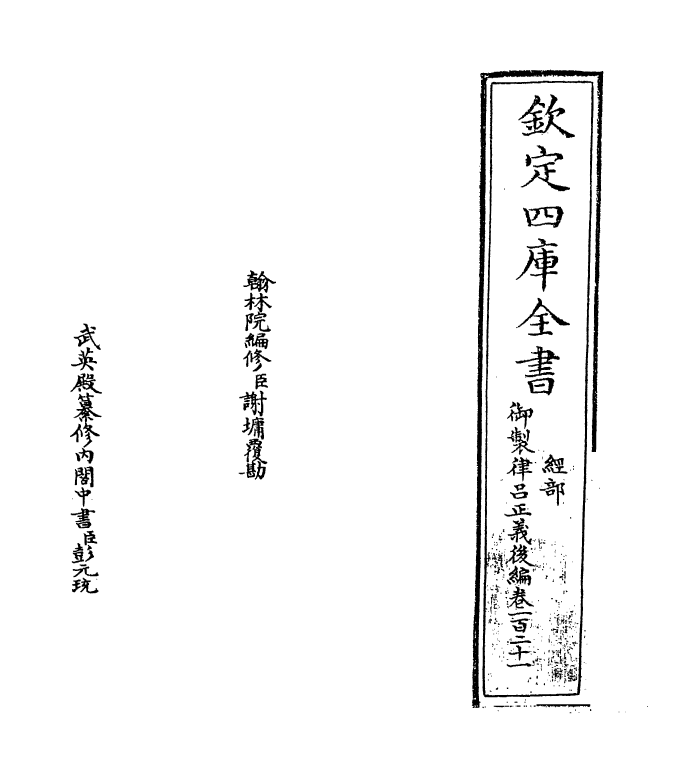 欽定四庫全書
經部
御製律呂正義後編卷一百二十一
翰林院編修臣謝墉覆勘
武英殿纂修內閣中書臣彭元珫